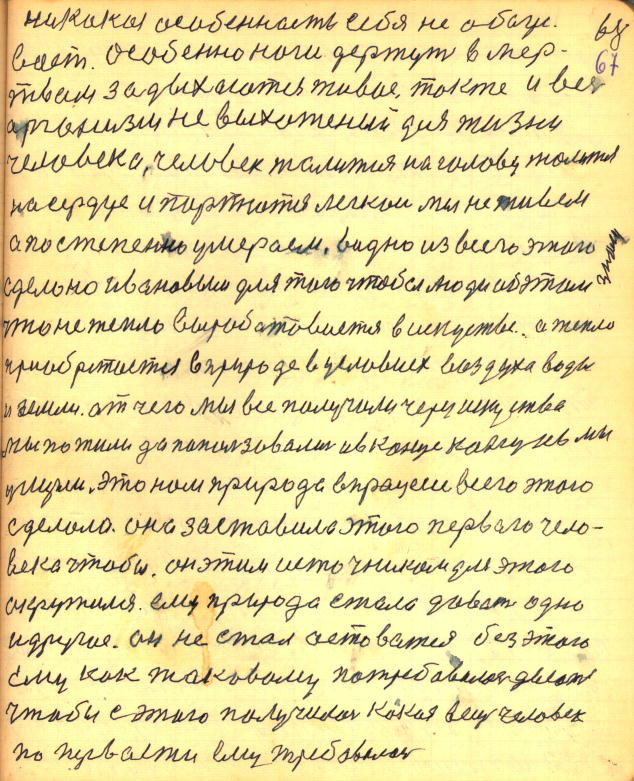 никакая особенность себя не обяу.
вает. Особенно ноги держут в мер-
твом задыхаются живое. также и вся
организм не выхоженый для жизни
человека, человек жалится на голову жалится
на сердце и портются легкои мы не живем
а постепенно умераем. видно из всего этого
сделоно Ивановым для того чтобы люди об этом знали
что не тепло выробатовается в искустве. а тепло
приобретается в природе в условиех воздуха воды
и земли. от чего мы все получили через искуства
мы пожили да попользовалися в конце концу мы
это нам природа в працесе всего этого
сделола. она заставила этого первого чело-
века чтобы. он этим источником для этого
окружился. ему природа стала давать одно
и другое. он не стал остоватся без этого
ему как таковому потребовалося делать
чтобы с этого получилося какая вещ человек
по первасти ему требовалося
67